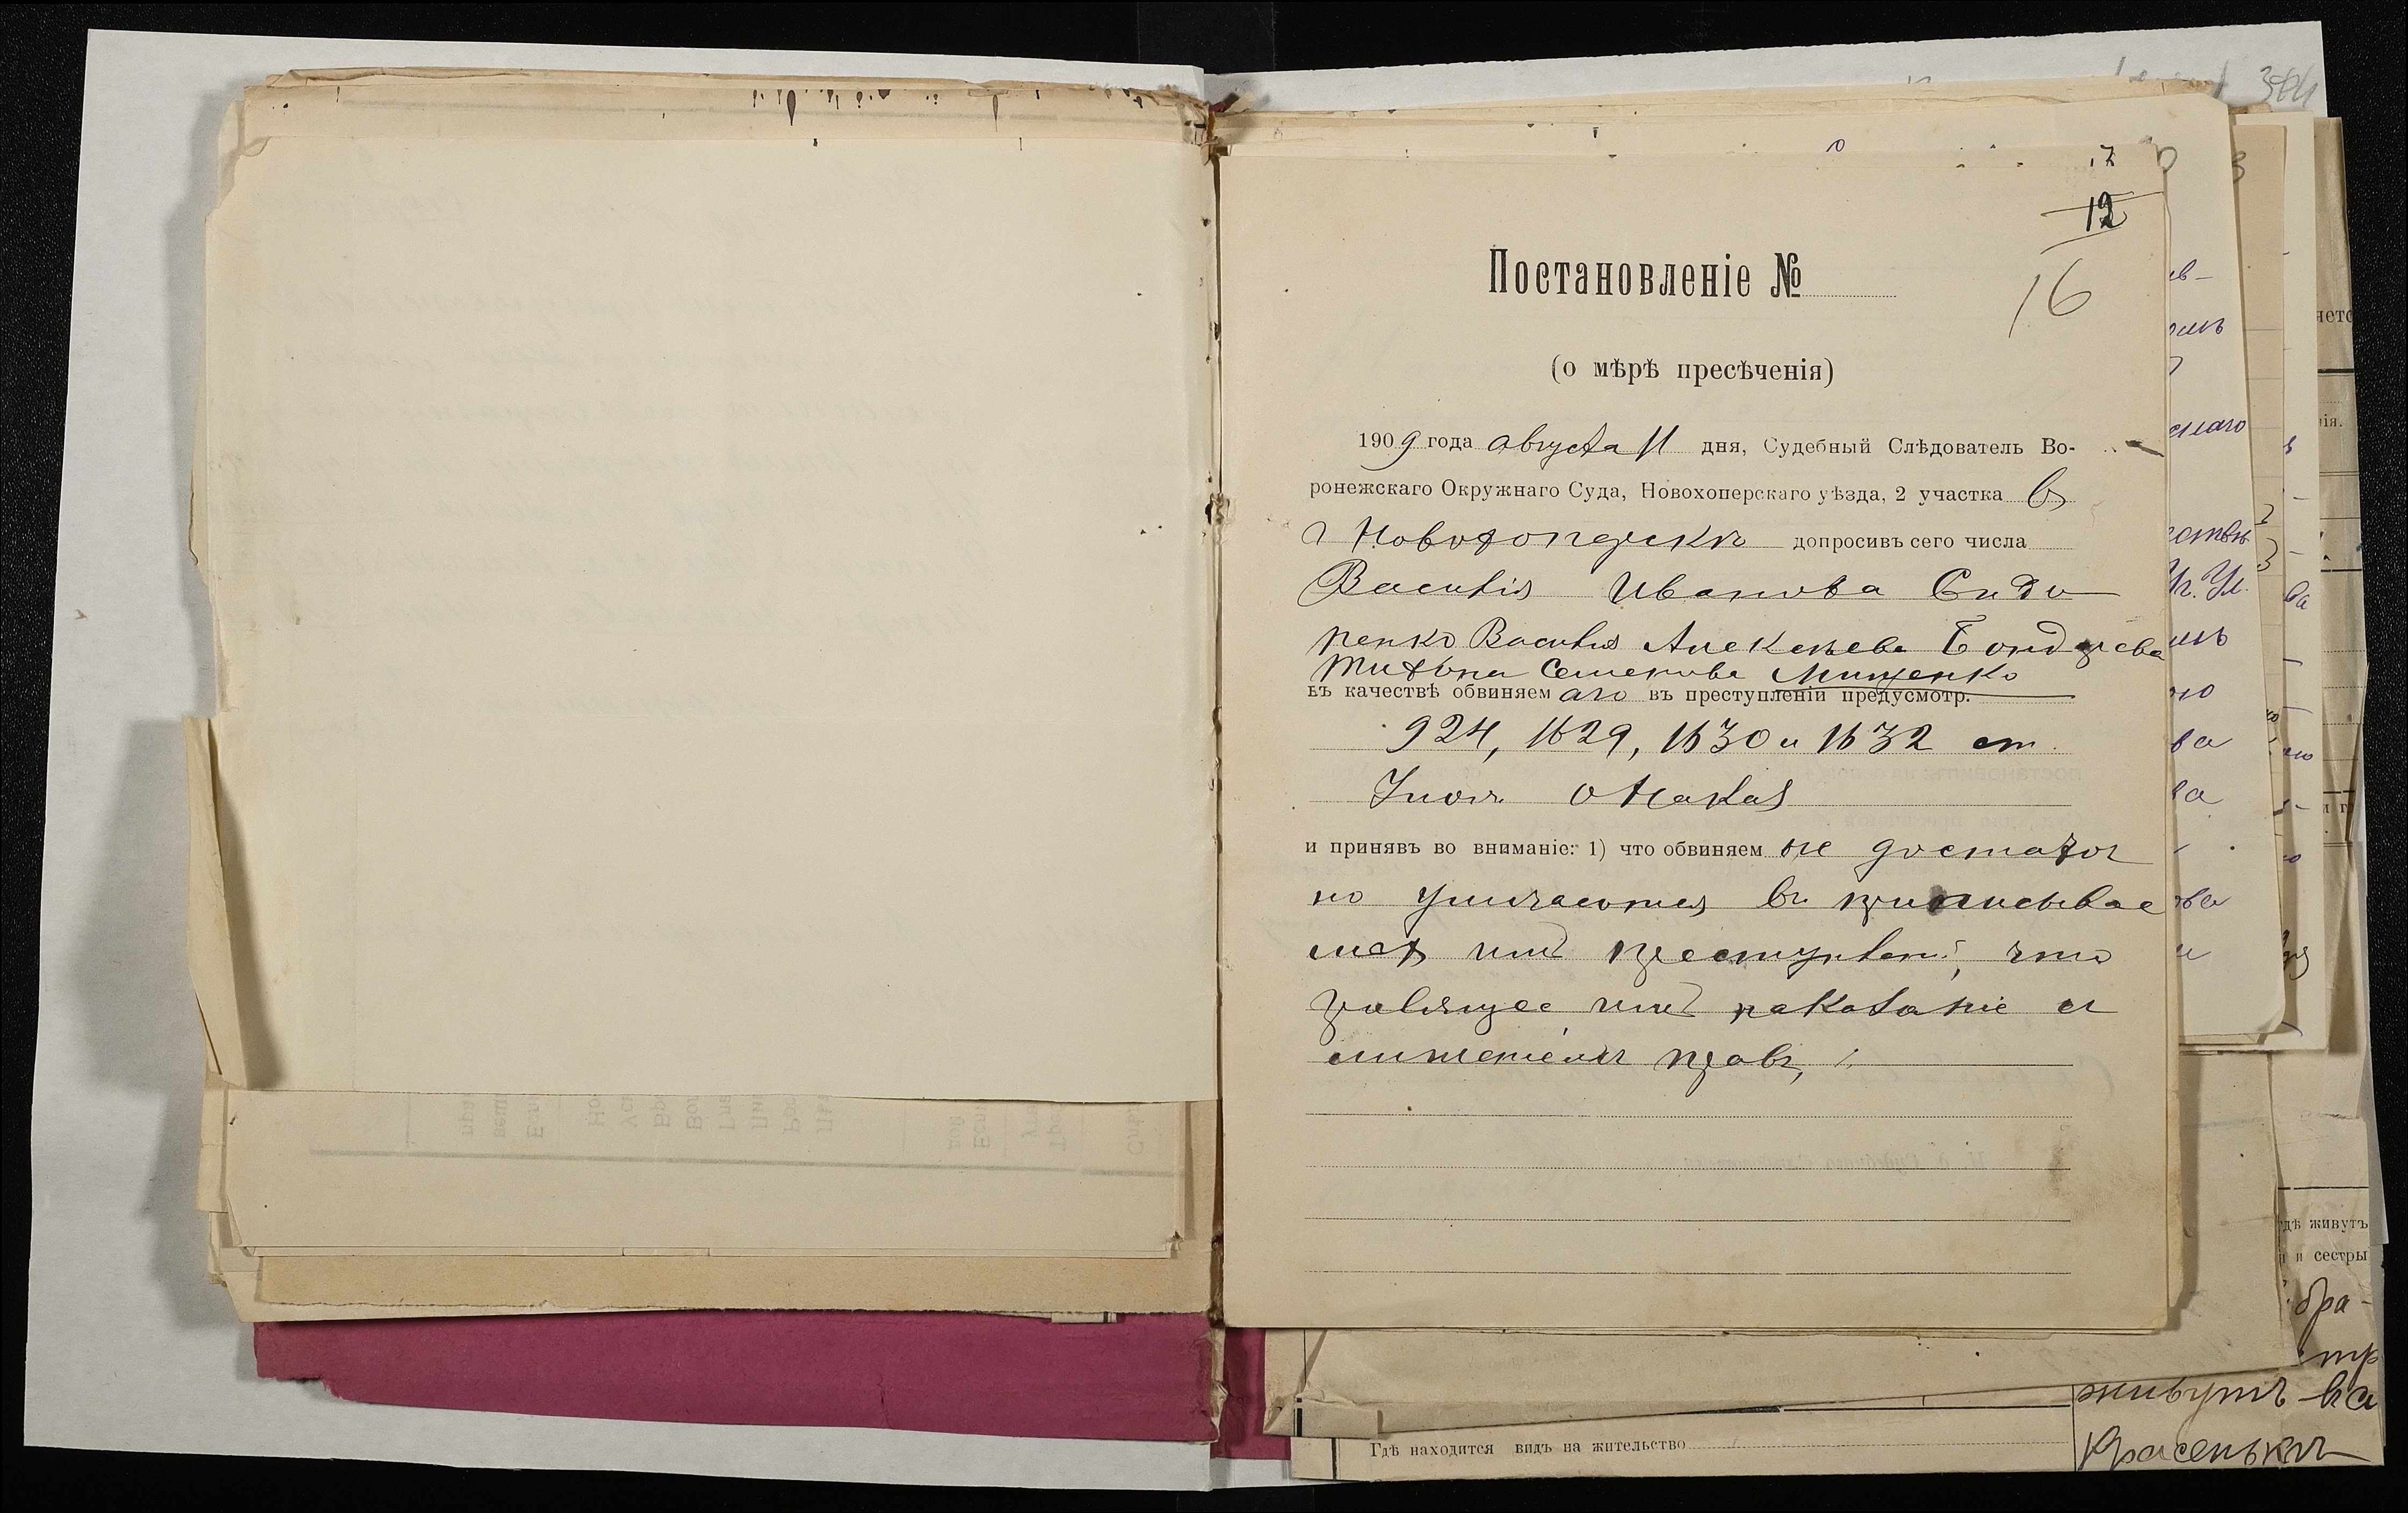 384
17
12
16
Постановленіе №
(о мѣрѣ пресѣченія)
1909 года августа 11 дня, Судебный Слѣдователь Во-
ронежскаго Окружнаго Суда, Новохоперскаго уѣзда, 2 участка въ
г Новохоперскѣ допросивъ сего числа
Василія Иванова Сидо
ренко Василія Алексѣева Бондарева
Семенова Мищенко
въ качествѣ обвиняемаго въ преступленіи предусмотр.
924, 1629, 1630 и 1632 ст.
Улож. о Наказ
и принявъ во вниманіе: 1) что обвиняемые достаточ
но уличаются въ приписывае
мыхъ имъ преступлені, что
грозящее имъ наказаніе съ
лишеніемъ правъ,
дѣ живутъ
и сестры
бра-
живутъ на
Красенькомъ
Гдѣ находится видъ на жительство